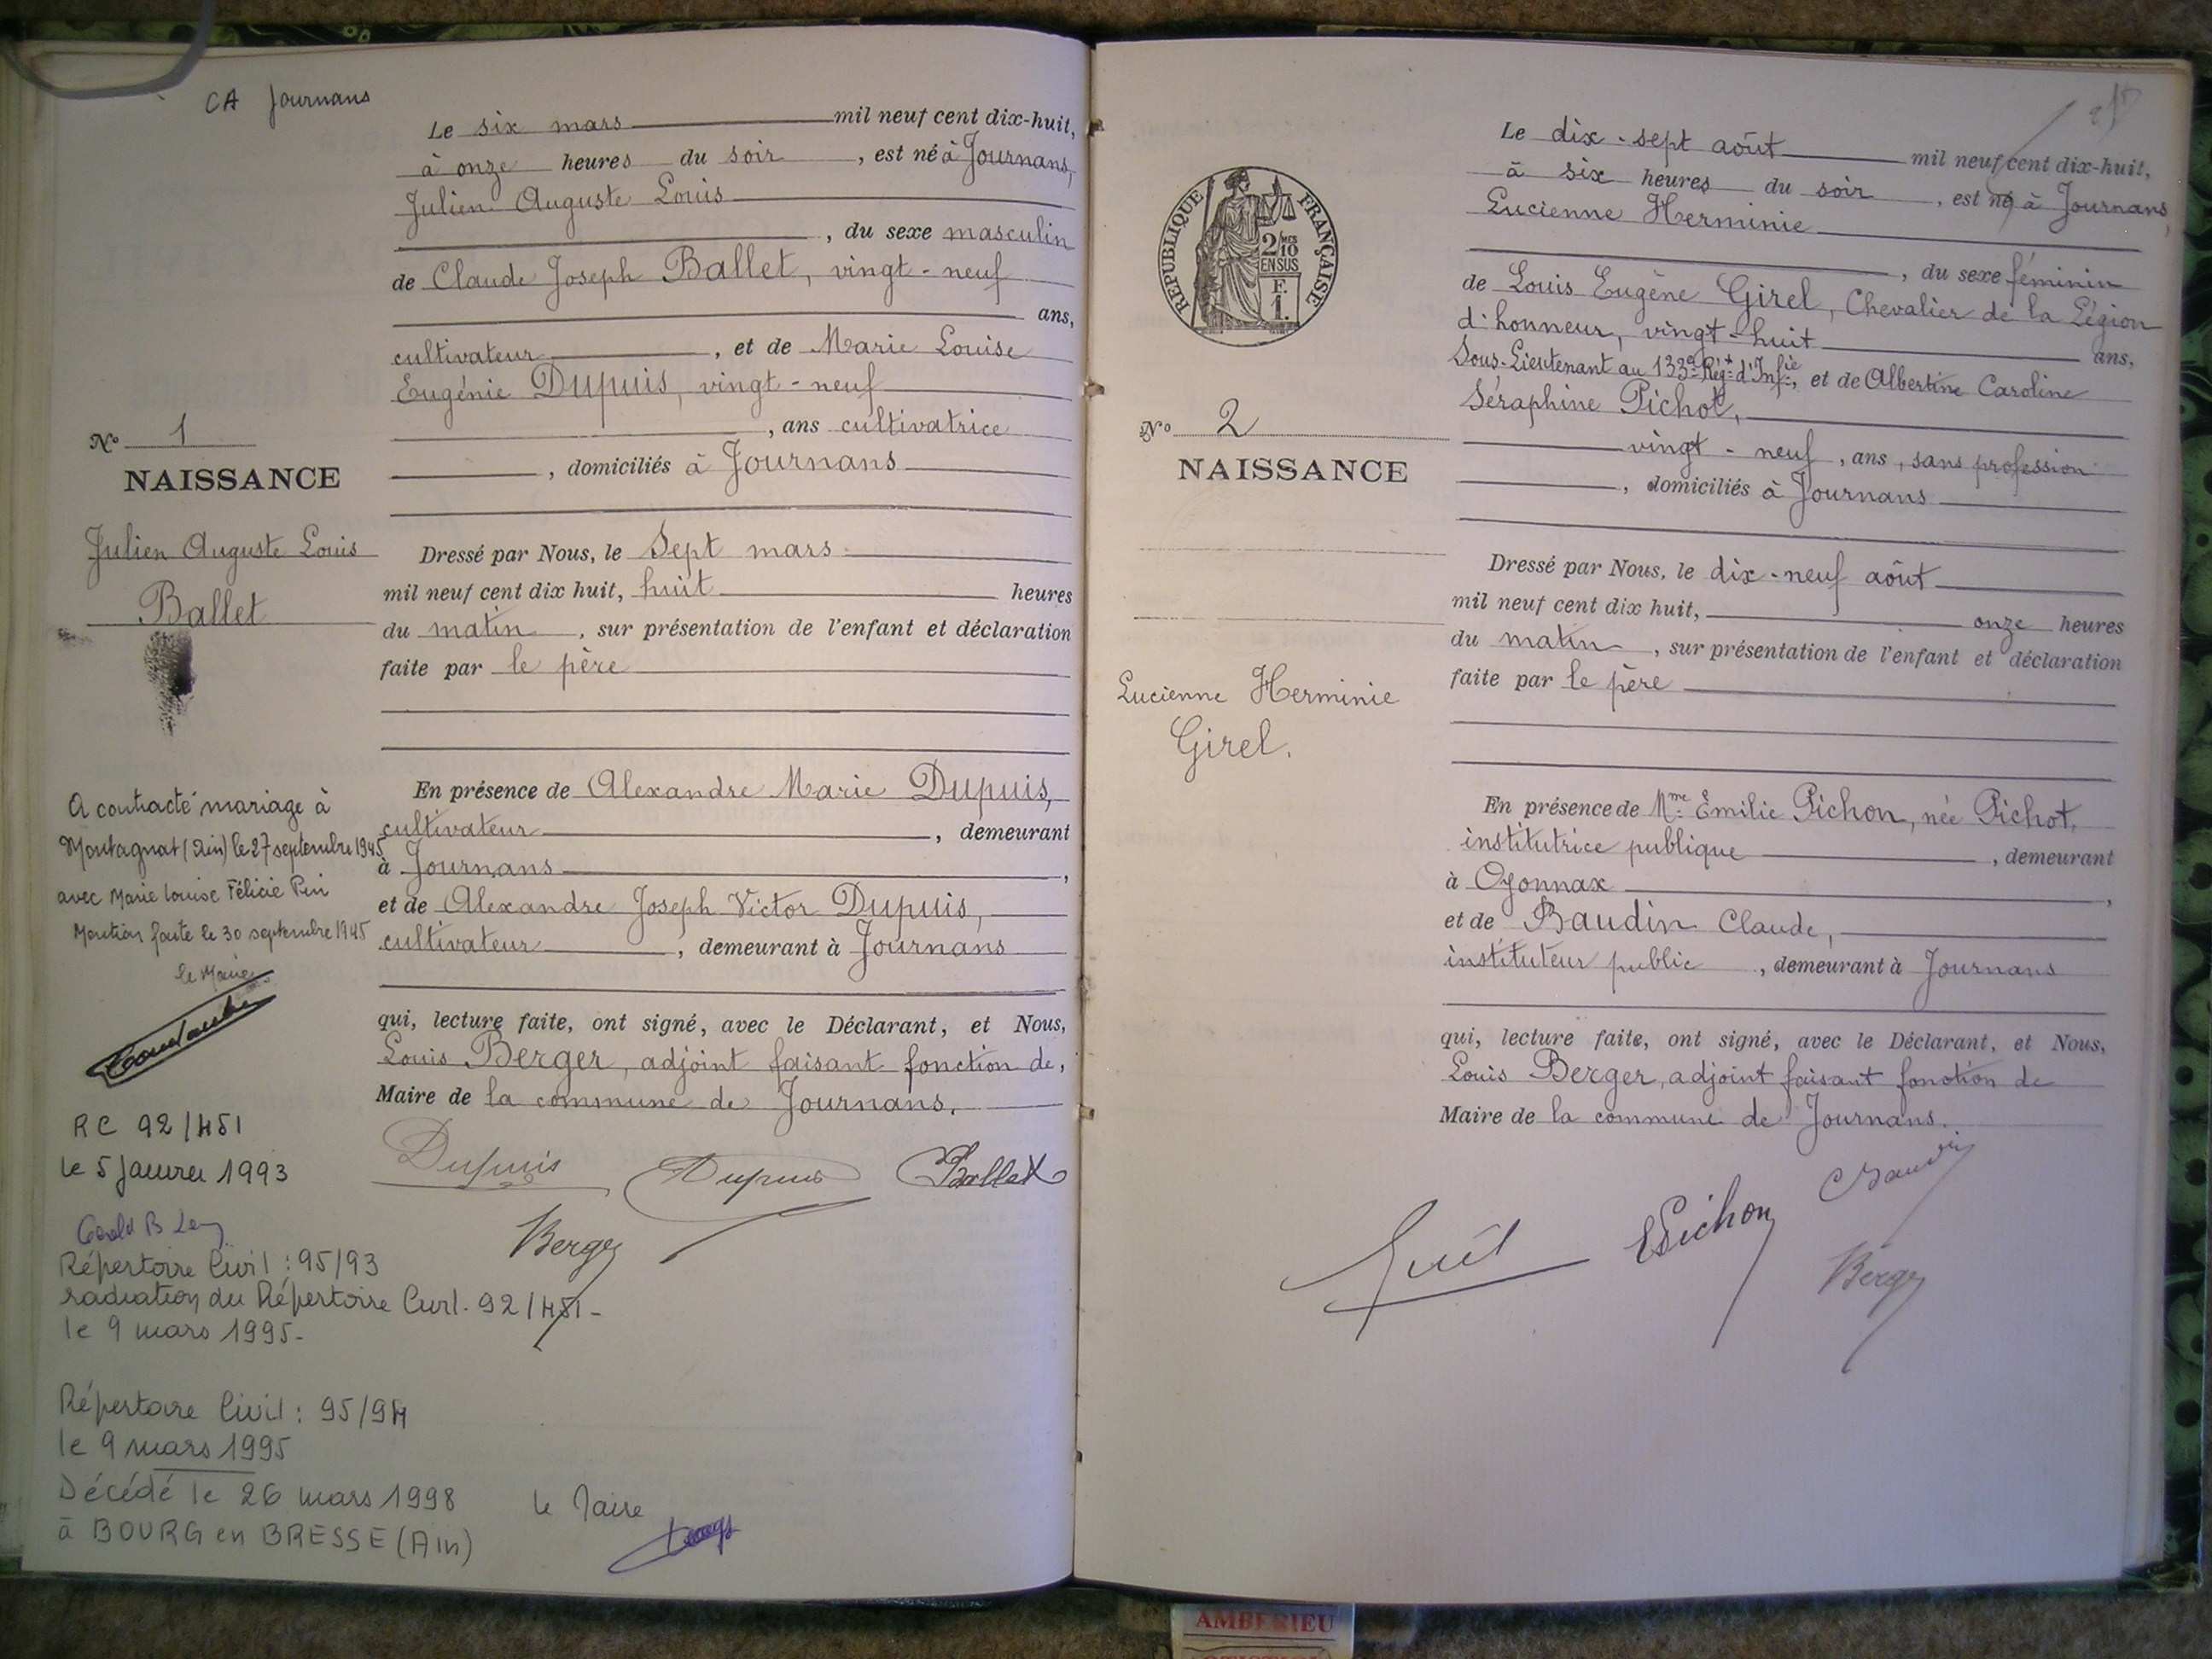 CA Journans
Le six mars mil neuf cent dix-huit,
à onze heures du soir, est né à Journans,
Julien Auguste Louis
, du sexe masculin
de Claude Joseph Ballet, vingt-neuf
ans,
cultivateur, et de Marie Louise
Eugénie Dupuis, vingt-neuf
, ans cultivatrice
, domiciliés à Journans
Nº 1
NAISSANCE
Julien Auguste Louis
Ballet
Dressé par Nous, le Sept mars
mil neuf cent dix huit, huit heures
du matin, sur présentation de l'enfant et déclaration
faite par le père
En présence de Alexandre Marie Dupuis,
cultivateur, demeurant
à Journans,
et de Alexandre Joseph Victor Dupuis,
cultivateur, demeurant à Journans
qui, lecture faite, ont signé, avec le Déclarant, et Nous,
Louis Berger, adjoint faisant fonction de,
Maire de la commune de Journans.
Dupuis Dupuis Ballet
Berger
A contracté mariage à
Montagnat (Ain) le 27 septembre 1945
avec Marie Louise Félicie
Mention faite le 30 septembre 1945
le Maire
RC 92/451
le 5 Janvier 1993
Répertoire Civil : 95/93
radiation du Répertoire Civil. 92/451-
le 9 mars 1995-
Répertoire Civil : 95/94
le 9 mars 1995
Décédé le 26 mars 1998
à BOURG en BRESSE (Ain)
le Maire
Le dix-sept août mil neuf cent dix-huit,
à six heures du soir, est né à Journans,
Lucienne Herminie
, du sexe féminin
de Louis Eugène Girel, Chevalier de la Légion
d'honneur, vingt-huit ans,
Sous-Lieutenant au 133e Régt d'Infie, et de Albertine Caroline
Séraphine Pichot,
vingt-neuf, ans, sans profession
, domiciliés à Journans
RÉPUBLIQUE FRANÇAISE
2/10 MES
EN SUS
F.
1.
Nº 2
NAISSANCE
Lucienne Herminie
Girel.
Dressé par Nous, le dix-neuf août
mil neuf cent dix huit, onze heures
du matin, sur présentation de l'enfant et déclaration
faite par le père
En présence de Mme Emilie Pichon, née Pichot,
institutrice publique, demeurant
à Oyonnax,
et de Baudin Claude,
instituteur public, demeurant à Journans
qui, lecture faite, ont signé, avec le Déclarant, et Nous,
Louis Berger, adjoint faisant fonction de
Maire de la commune de Journans.
Girel EPichon CBaudin
Berger
AMBERIEU